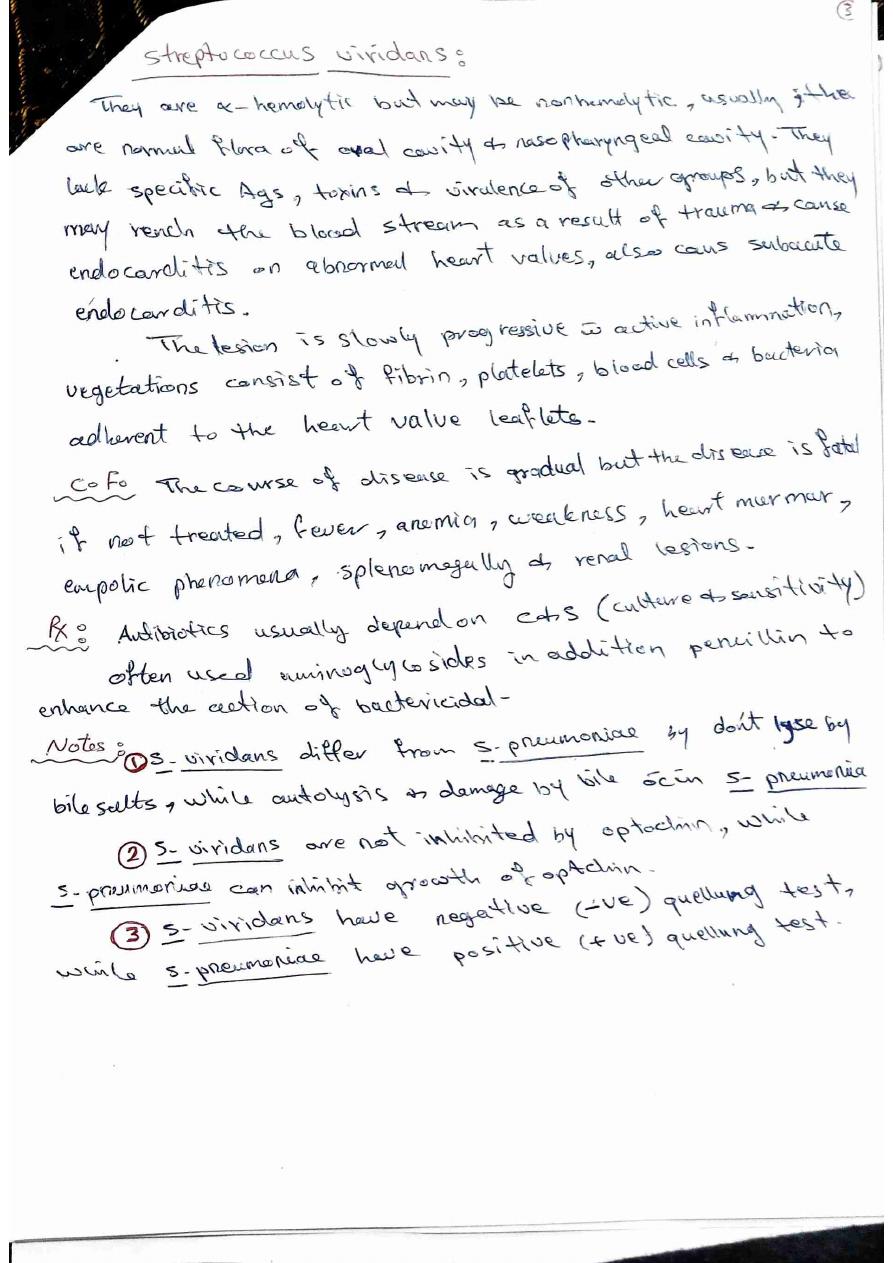 3
Streptococcus viridans:
They are α-hemolytic but may be nonhemolytic, usually
are normal flora of oral cavity & nasopharyngeal cavity. They
lack specific Ags, toxins & virulence of other groups, but they
may reach the blood stream as a result of trauma & cause
endocarditis on abnormal heart values, also caus subacute
endocarditis.
The lesion is slowly progressive c̄ active inflammation,
vegetations consist of fibrin, platelets, blood cells & bacteria
adherent to the heart value leaflets.
C.F. The course of disease is gradual but the disease is fatal
if not treated, fever, anemia, weakness, heart murmar,
empolic phenomena, splenomegally & renal lesions.
Rx: Antibiotics usually depend on C&S (culture & sensitivity)
often used aminoglycosides in addition pencillin to
enhance the action of bactericidal-
Notes: ① S. viridans differ from S. pneumoniae by don't lyse by
bile salts, while autolysis & damage by bile in S. pneumonia
② S. viridans are not inhibited by optochin, while
S. pneumoniae can inhibit growth of optchin.
③ S. viridans have negative (-ve) quellung test,
while S. pneumoniae have positive (+ve) quellung test.